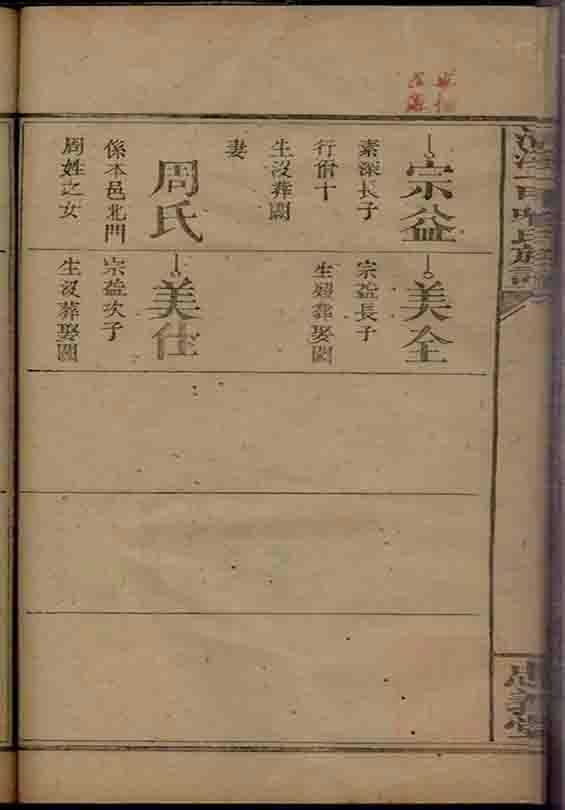 宗益
素深長子
行僧十
生沒葬闕
妻
周氏
係本邑北門
周姓之女
美全
宗益長子
生歿葬娶闕
美仕
宗益次子
生沒葬娶闕